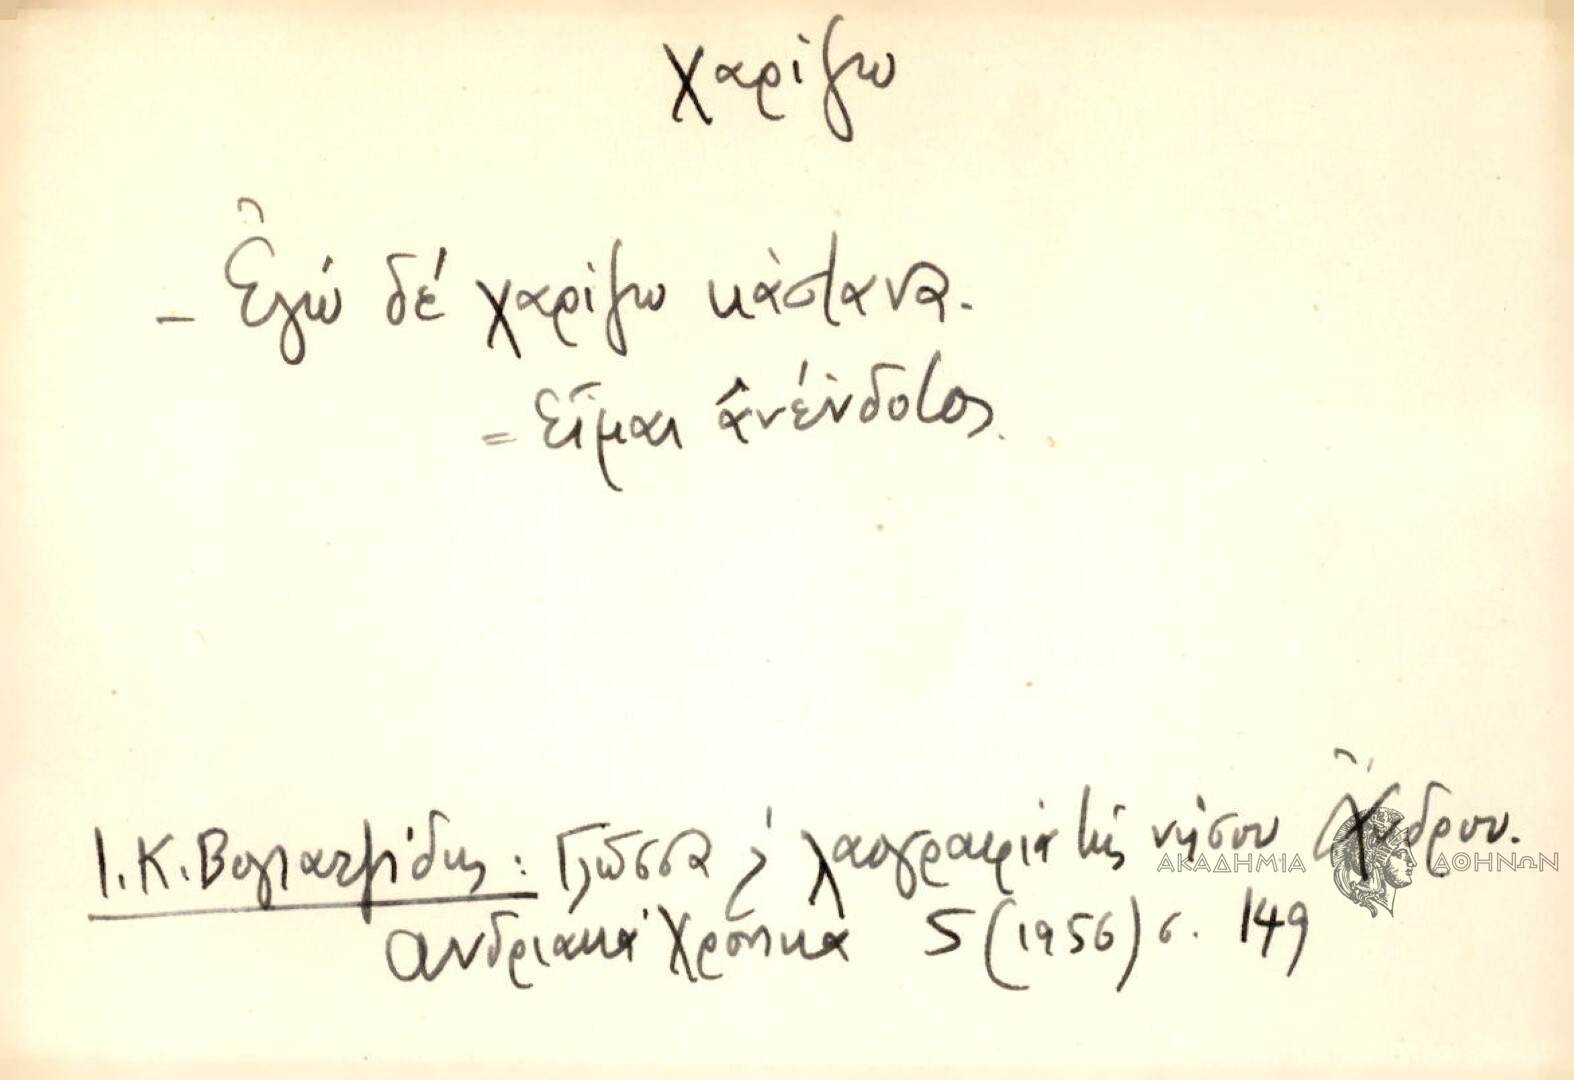 χαρίζω
– Ἐγώ δέ χαρίζω κάστανα.
= Εἶμαι ἀνένδοτος.
Ι. Κ. Βογιατζίδης: Γλῶσσα ϗ λαογραφία τῆς νήσου Ἄνδρου.
ΑΚΑΔΗΜΙΑ ΑΘΗΝΩΝ
Ανδριακά Χρονικά 5 (1956) σ. 149